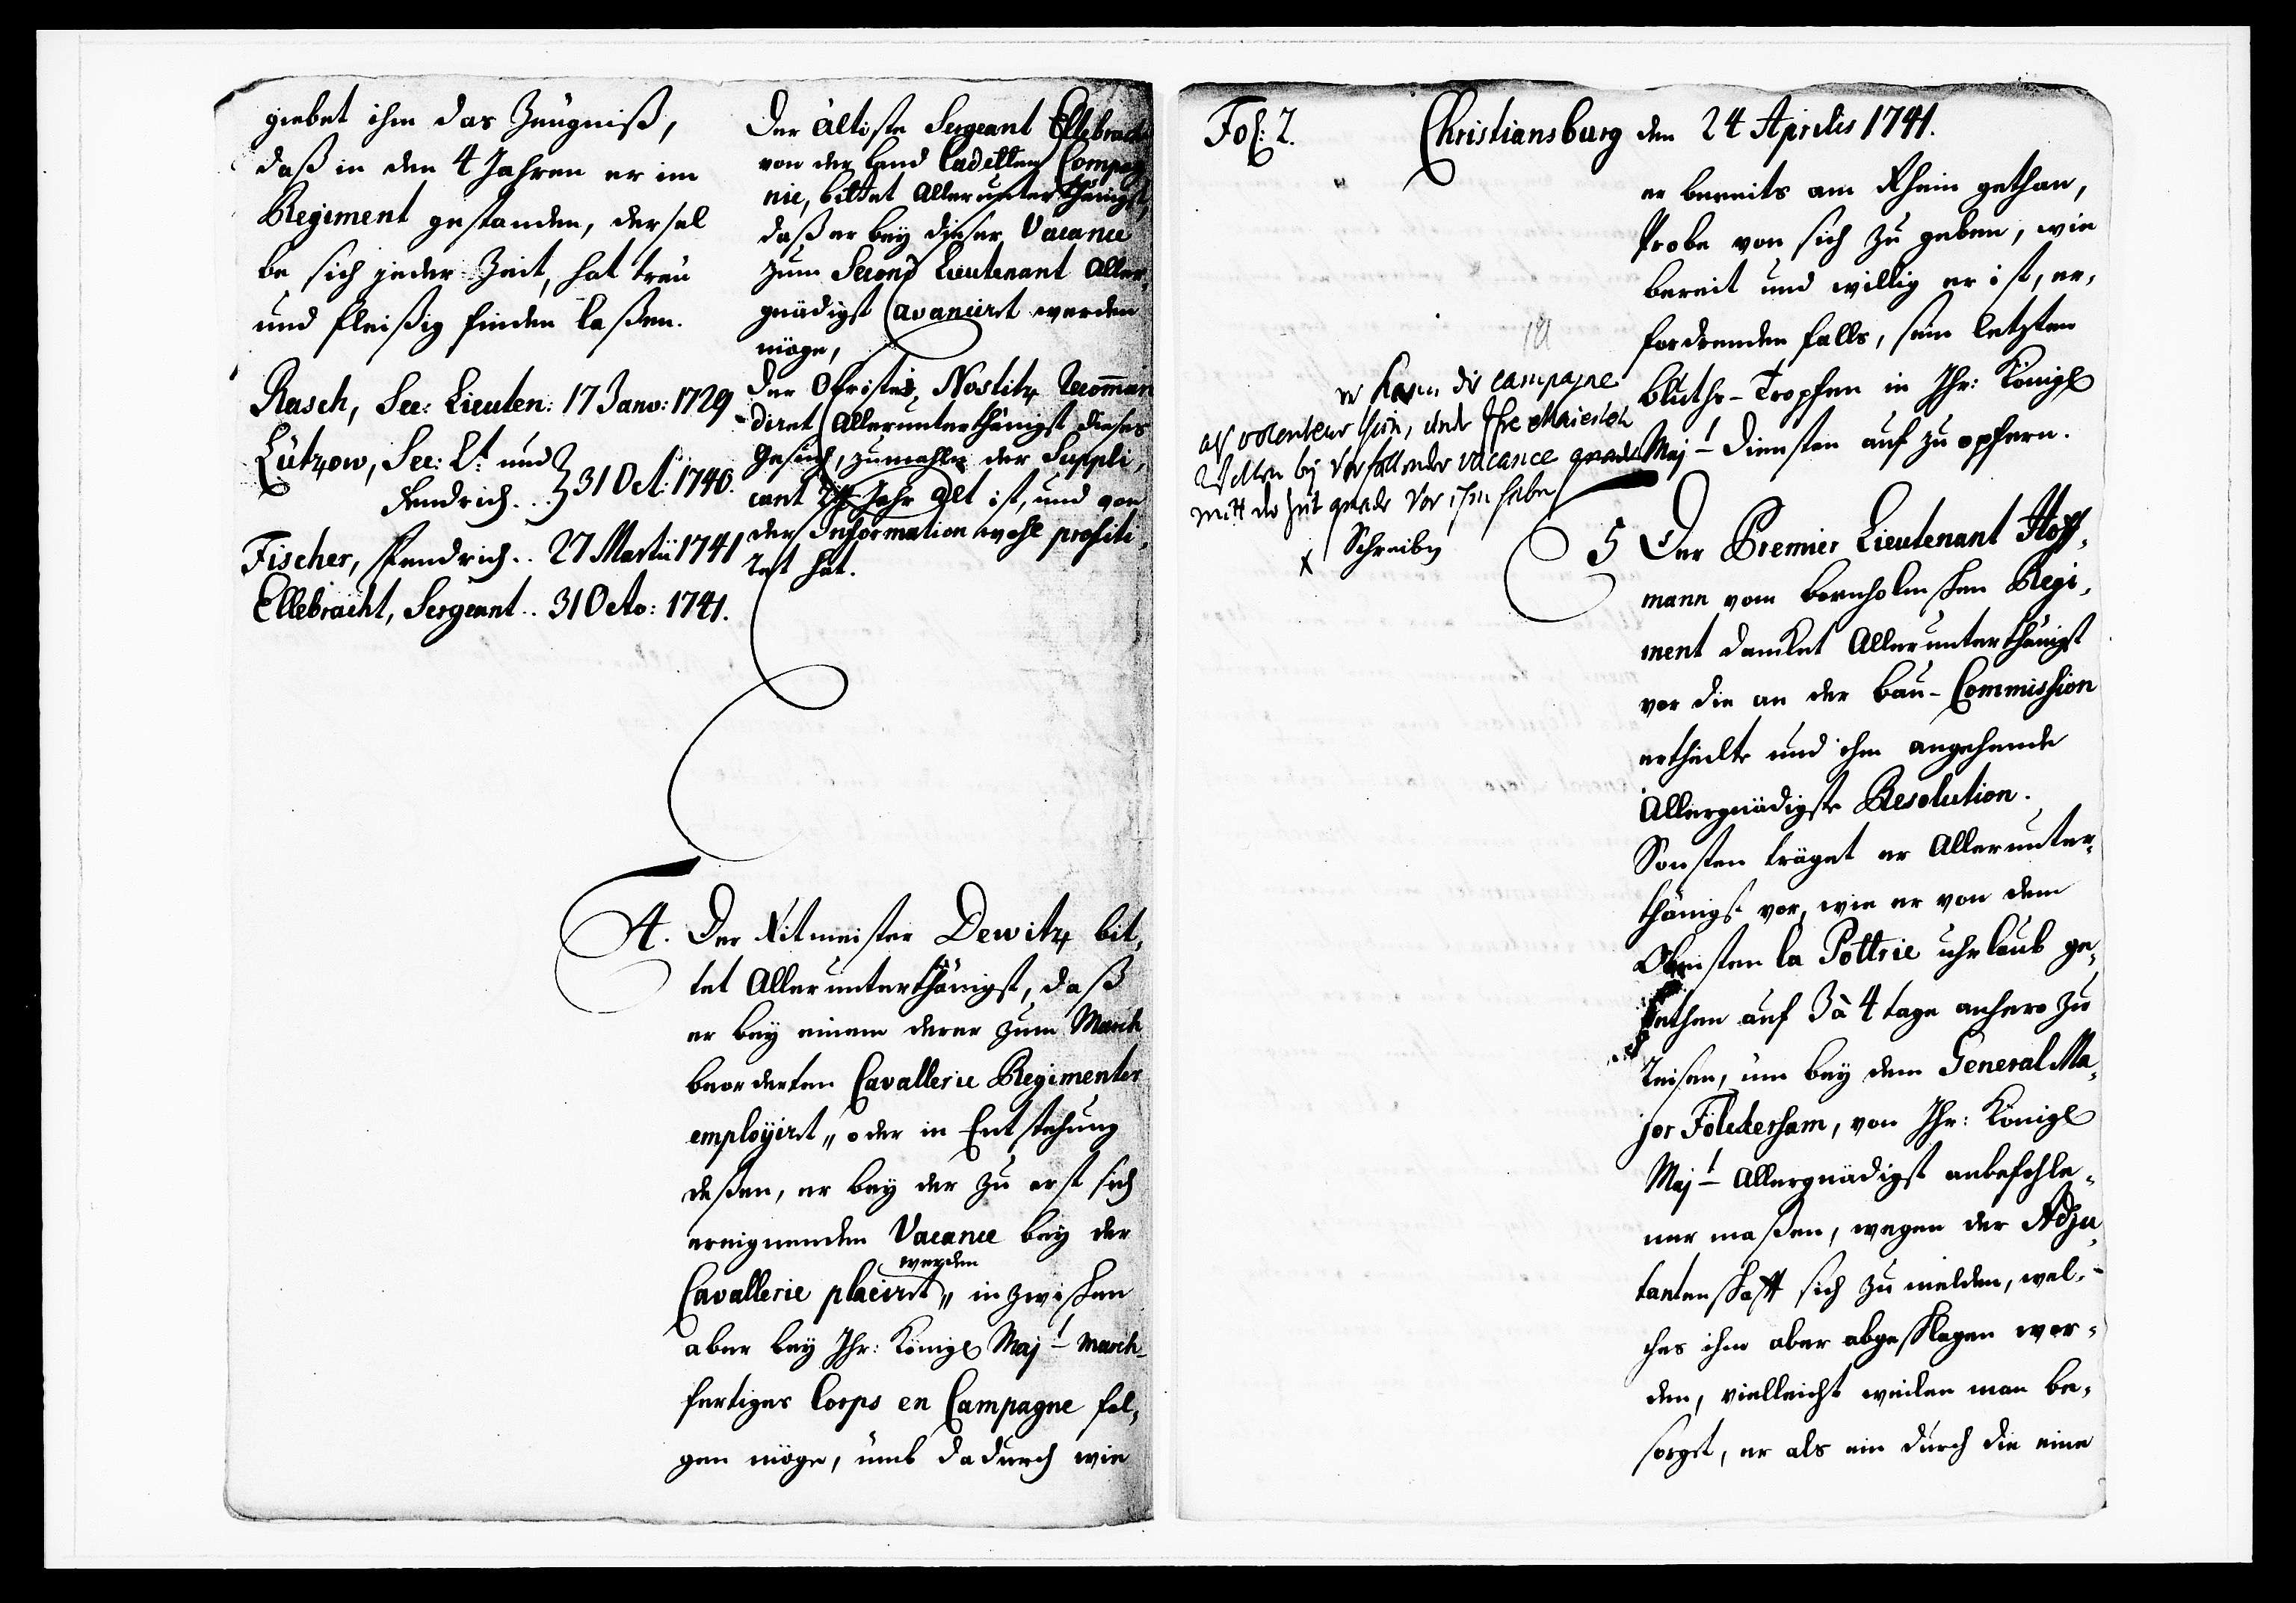 giebet ihm das Zeugniß,
daß in den 4 Jahren er im
Regiment gestanden, dersel
be sich jeder Zeit, hat treu
und fleißig finden laßen.
Rasch, Sec: Lieuten: 17 Janv: 1729
Lützow, Sec: Lt und
Fendrich... 31 Oct: 1740.
Fischer, Fendrich.. 27 Martii 1741
Ellebracht, Sergeant.. 31 Octo: 1741.
Der ältiste Sergeant Ellebracht
von der Land Cadetten Compag
nie, bittet Allerunterthänigst,
daß er bey dieser Vacance
zum Second Lieutenant Aller,
gnädigst avancirt werden
möge,
Der Obriste Nostitz Recomman
diret Allerunterthänigst dieses
Gesuch, zumahlen der Suppli,
cant 24 Jahr alt ist, und von
der Information wohl profiti,
ret hat.
4. Der Ritmeister Dewitz bit,
tet Allerunterthänigst, daß
er bey einem derer zum March
beorderten Cavallerie Regimenter
employirt,, oder in Entstehung
deßen, er bey der zu erst sich
ereignenden Vacance bey der
werden
Cavallerie placirt,, inzwischen
aber bey Ihr: Königl Majt March-
fertiges Corps en Campagne fol,
gen möge, umb dadurch wie
Fol: 2. Christiansburg den 24 Aprilis 1741.
er bereits am Rhein gethan,
Probe von sich zu geben, wie
bereit und willig er ist, er,
fordrenden falls, sein letzten
bluths-Tropfen in Ihr: Königl
Majt Diensten auf zu opfern.
er kann die campagne
als volenteur thun, und Ihre Maiestet
wollen bey vorfallender vacance gnade
mitt der Zeit gnade vor ihm haben
x Schreiben
5 Der Premier Lieutenant Hoff,
mann vom bornholmschen Regi,
ment danket Allerunterthänigst
vor die an der Bau-Commission
ertheilte und ihm angehende
Allergnädigste Resolution.
Sonsten träget er Allerunter,
thänigst vor, wie er von dem
Obristen la Pottrie uhrlaub ge,
bethen auf 3 à 4 tage anhero zu
reisen, um bey dem General Ma,
jor Fölckersham, von Ihr: Königl
Majt Allergnädigst anbefohle,
ner maßen, wegen der Adju,
tantenschafft sich zu melden, wel,
ches ihm aber abgeschlagen wor,
den, vielleicht weilen man be,
sorget, er als ein durch die eine